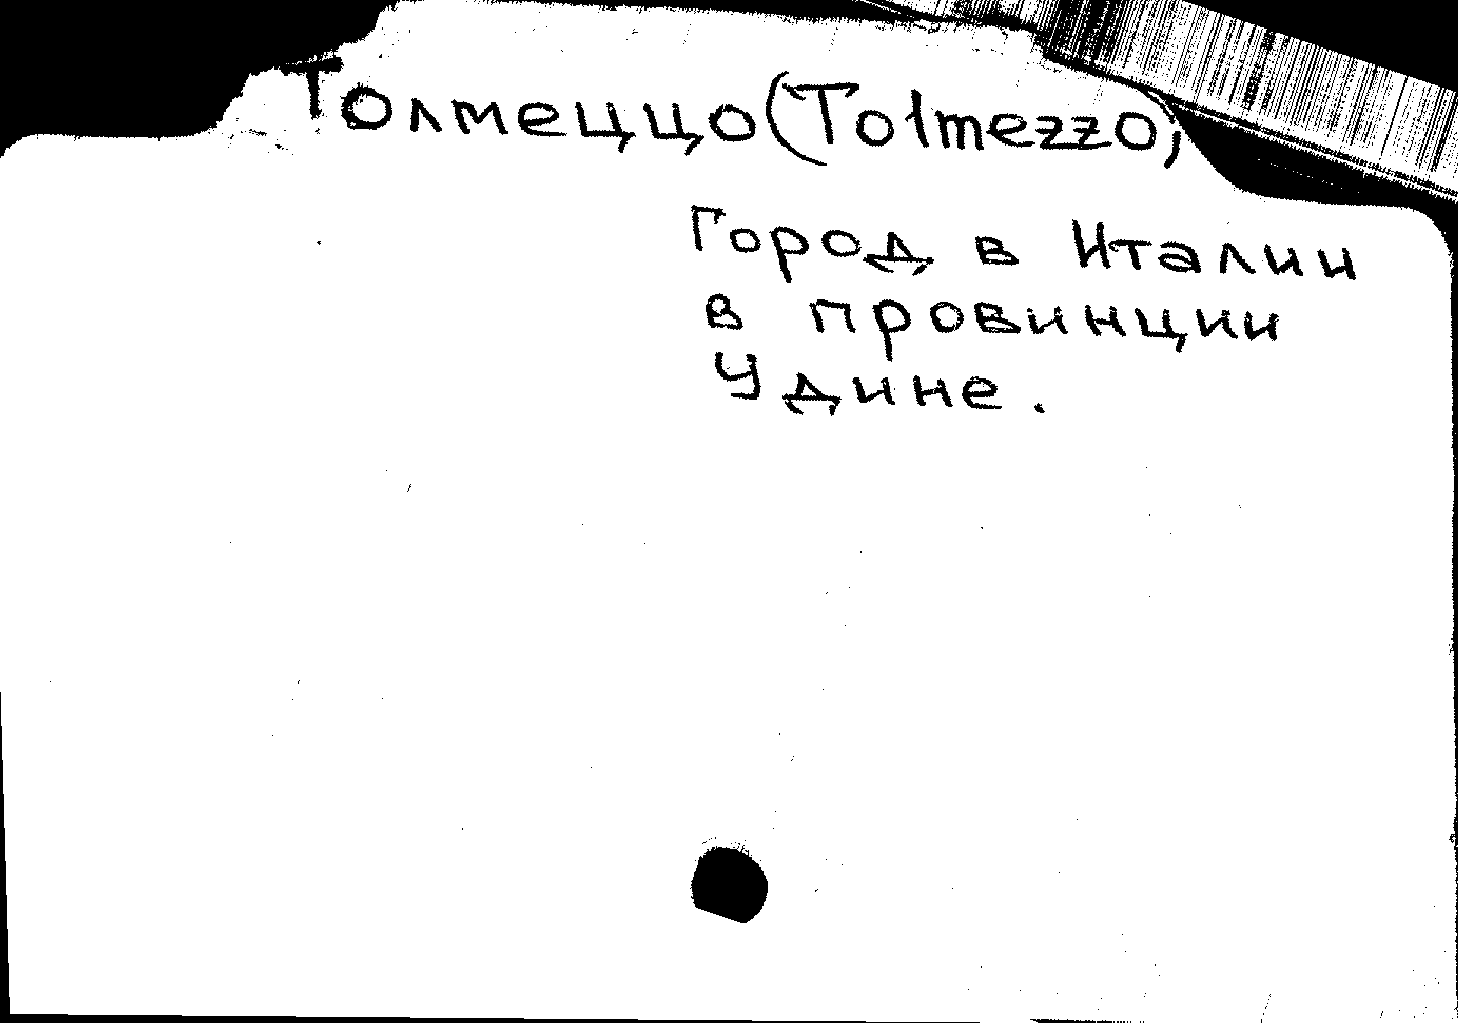 Толмеццо (Tolmezzo,
Город в Италии
в провинции
Удине.